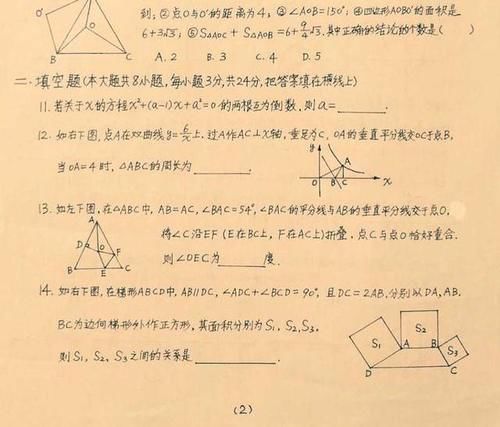 到; ②点O与O'的距离为4; ③∠AOB=150°; ④四边形AOBO'的面积是
6+3√3; ⑤S△AOC+S△AOB=6+9/4√3. 其中正确的结论的个数是( )
A. 2 B. 3 C. 4 D. 5
O'
O
B
C
二. 填空题(本大题共8小题, 每小题3分, 共24分, 把答案填在横线上)
11. 若关于x的方程x²+(a-1)x+a²=0的两根互为倒数, 则a=____.
12. 如右下图, 点A在双曲线y=6/x上, 过A作AC⊥x轴, 垂足为C, OA的垂直平分线交OC于点B,
当OA=4时, △ABC的周长为____.
y
A
O
B
C
x
13. 如左下图, 在△ABC中, AB=AC, ∠BAC=54°, ∠BAC的平分线与AB的垂直平分线交于点O,
将∠C沿EF(E在BC上, F在AC上)折叠, 点C与点O恰好重合,
则∠OEC为____度.
A
D
O
F
B
E
C
14. 如右下图, 在梯形ABCD中, AB∥DC, ∠ADC+∠BCD=90°, 且DC=2AB, 分别以DA, AB,
BC为边向梯形外作正方形, 其面积分别为S₁, S₂, S₃,
则S₁, S₂, S₃之间的关系是____.
S₁
S₂
S₃
A
B
D
C
(2)